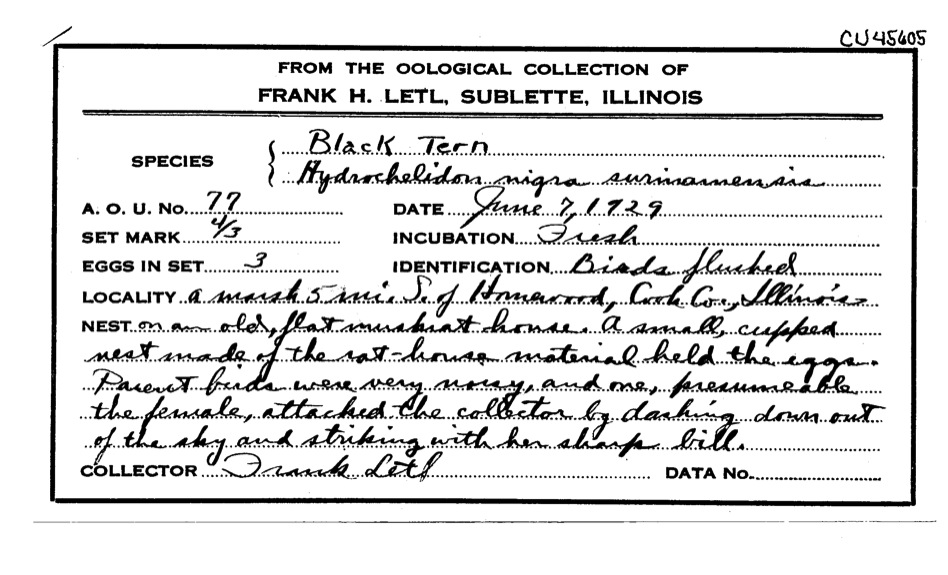 CU45605
FROM THE OOLOGICAL COLLECTION OF
FRANK H. LETL, SUBLETTE, ILLINOIS
SPECIES { Black Tern
Hydrochelidon nigra surinamensis
A. O. U. No. 77 DATE June 7, 1929
SET MARK 4/3 INCUBATION Fresh
EGGS IN SET 3 IDENTIFICATION Birds flushed
LOCALITY a marsh 5 mi. S. of Homewood, Cook Co., Illinois
NEST on an old, flat muskrat house. A small, cupped
nest made of the rat-house material held the eggs.
Parent birds were very noisy, and one, presumeable
the female, attacked the collector by dashing down out
of the sky and striking with her sharp bill.
COLLECTOR Frank Letl DATA No.